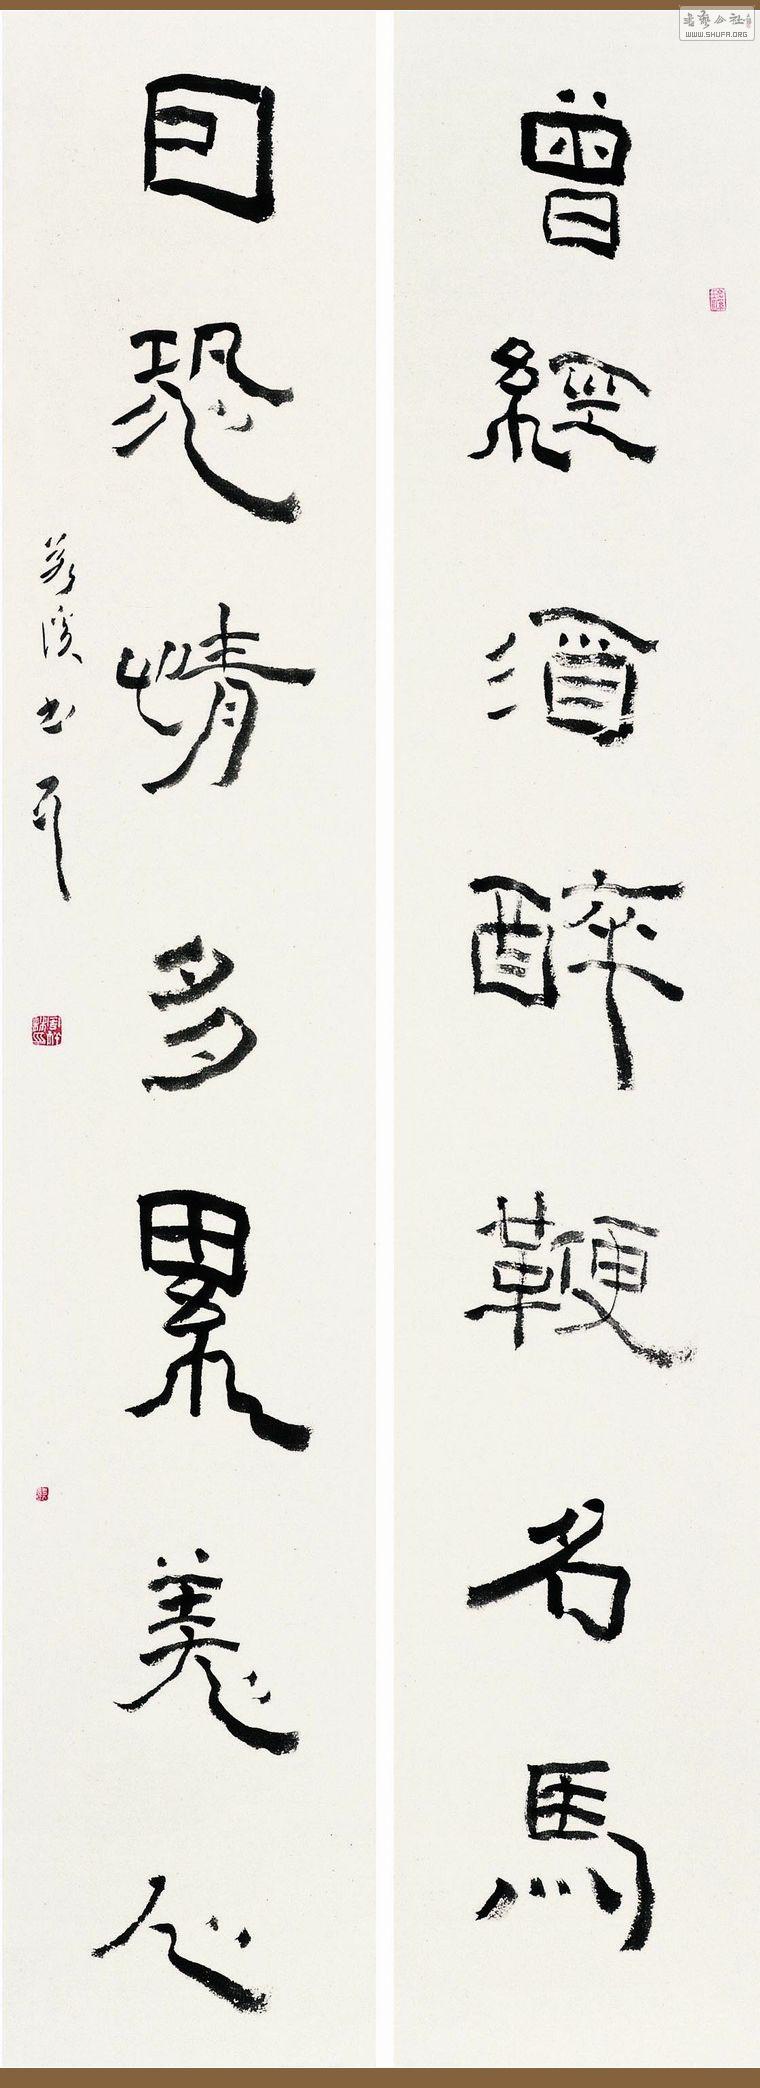 曾經酒醉鞭名馬
因恐情多累美人
書藝公社
WWW.SHUFA.ORG